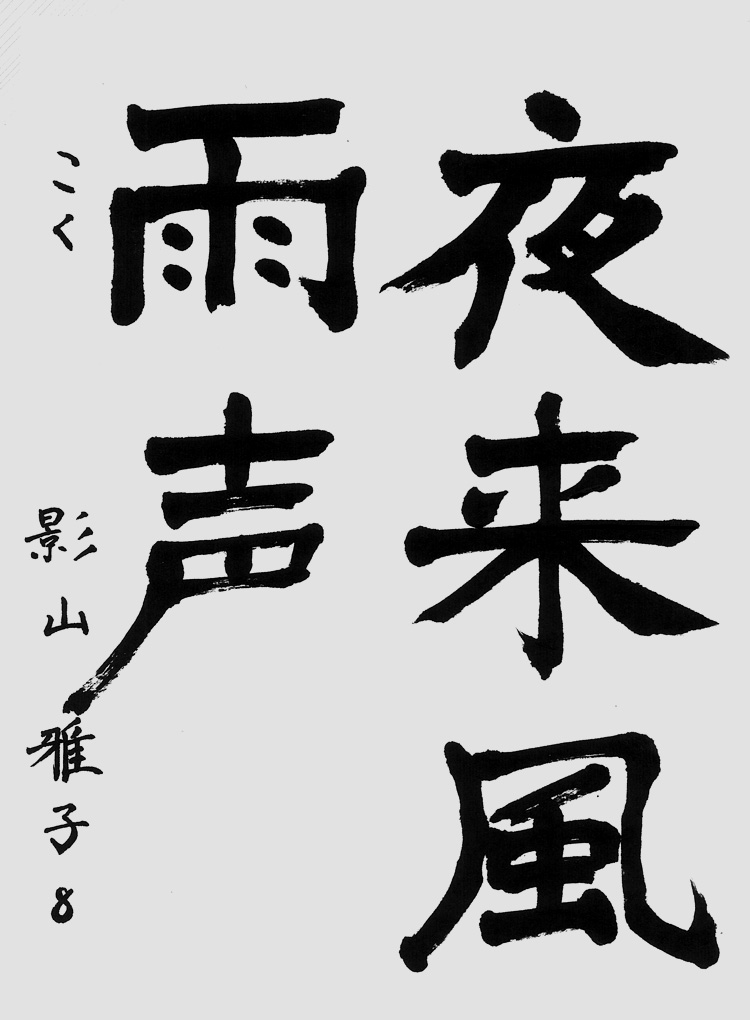 夜来風
雨声
こく
影山雅子8